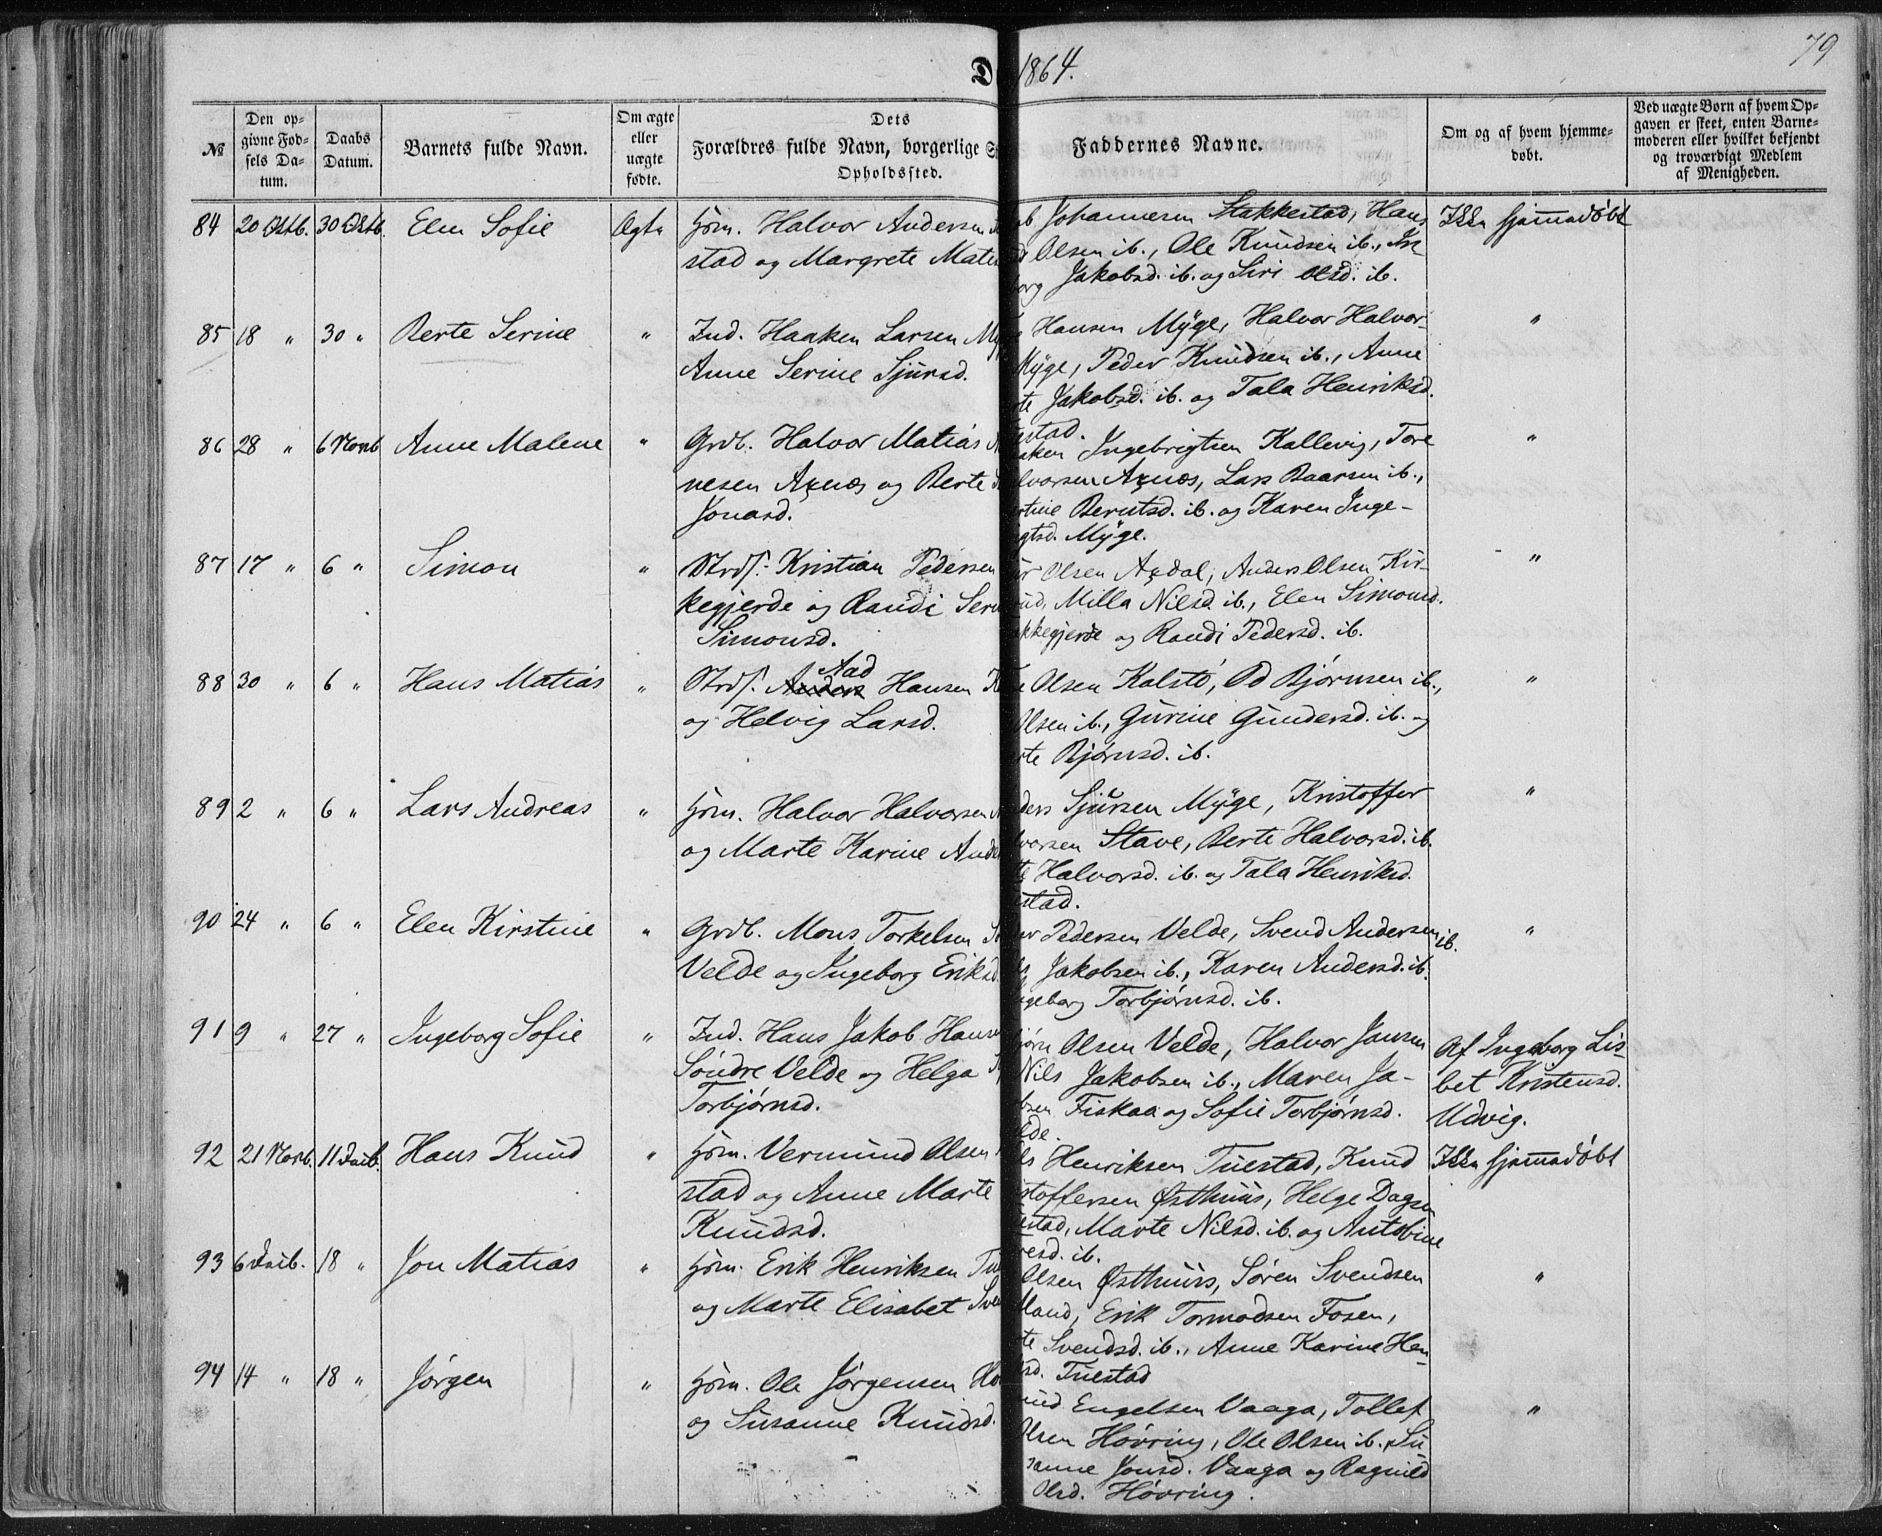 79
1864.
№
Den op-
givne Fød-
sels Da-
tum.
Daabs
Datum.
Barnets fulde Navn.
Om ægte
eller
uægte
fødte.
Dets
Forældres fulde Navn, borgerlige
Opholdssted.
Faddernes Navne.
Om og af hvem hjemme-
døbt.
Ved uægte Børn af hvem Op-
gaven er skeet, enten Barne-
moderen eller hvilket bekjendt
og troværdigt Medlem
af Menigheden.
84 20 Oktb. 30 Oktb. Elen Sofie Ægte Hjm. Halvor Andersen
stad og Margrete
Johannesen Stakkestad, Hans
Olsen ib., Ole Knudsen ib.,
Jakobsd. ib. og Siri Olsd. ib.
Ikke hjemmedøbt
85 18 " 30 " Berte Serine " Ind. Haaken Larsen
Anne Serine Sjursd.
Hansen Myge, Halvor Halvor-
Myge, Peder Knudsen ib., Anne
Jakobsd. ib. og Tala Henriksd.
"
86 28 " 6 Novb Anne Malene " Grdb. Halvor Matias
nesen Axnæs og Berte
Jonasd.
Ingebrigtsen Kallevig, Tore
Axnæs, Lars Baarsen ib.,
Berntsd. ib. og Karen Inge-
Myge.
"
87 17 " 6 " Simon " Strds. Kristian Pedersen
kegjerde og Randi
Simonsd.
Olsen Axdal, Anders Olsen Kir-
Milla Nilsd. ib., Elen Simonsd.
og Randi Pedersd. ib.
"
88 30 " 6 " Hans Matias " Strds. Anders Aad Hansen
og Helvig Larsd.
Olsen Kalstø, Od Bjørnsen ib.,
Olsen ib., Gurine Gundersd. ib. og
Bjørnsd. ib.
"
89 2 " 6 " Lars Andreas " Hjm. Halvor Halvorsen
og Marte Karine
Sjursen Myge, Kristoffer
Stave, Berte Halvorsd. ib.
Halvorsd. ib. og Tala Henriksd.
"
90 24 " 6 " Elen Kirstine " Grdb. Mons Torkelsen
Velde og Ingeborg Eriksd.
Pedersen Velde, Svend Andersen ib.
Jakobsen ib., Karen Andersd. ib.
Torbjørnsd. ib.
"
91 9 " 27 " Ingeborg Sofie " Ind. Hans Jakob
Søndre Velde og Helga
Torbjørnsd.
Olsen Velde, Halvor Jansen
Nils Jakobsen ib., Maren Ja-
Fiskaa og Sofie Torbjørnsd.
Af Ingeborg Lis-
bet Kristensd.
Udvig.
92 21 Novb. 11 Decb. Hans Knud " Hjm. Vermund Olsen
stad og Anne Marte
Knudsd.
Henriksen Tuestad, Knud
Østhuus, Helge Dagsen
Marte Nilsd. ib. og Antobine
ib.
Ikke hjemmedøbt
93 6 Decb. 18 " Jon Matias " Hjm. Erik Henriksen
og Marte Elisabet
Olsen Østhuus, Søren Svendsen
Erik Tormodsen Fosen,
Svendsd. ib., Anne Karine Hen-
Tuestad
"
94 14 " 18 " Jørgen " Hjm. Ole Jørgensen
og Susanne Knudsd.
Engelsen Vaaga, Tollef
Olsen Høvring, Ole Olsen ib., Su-
sanne Jonsd. Vaaga og Ragnild
Olsd. Høvring.
"